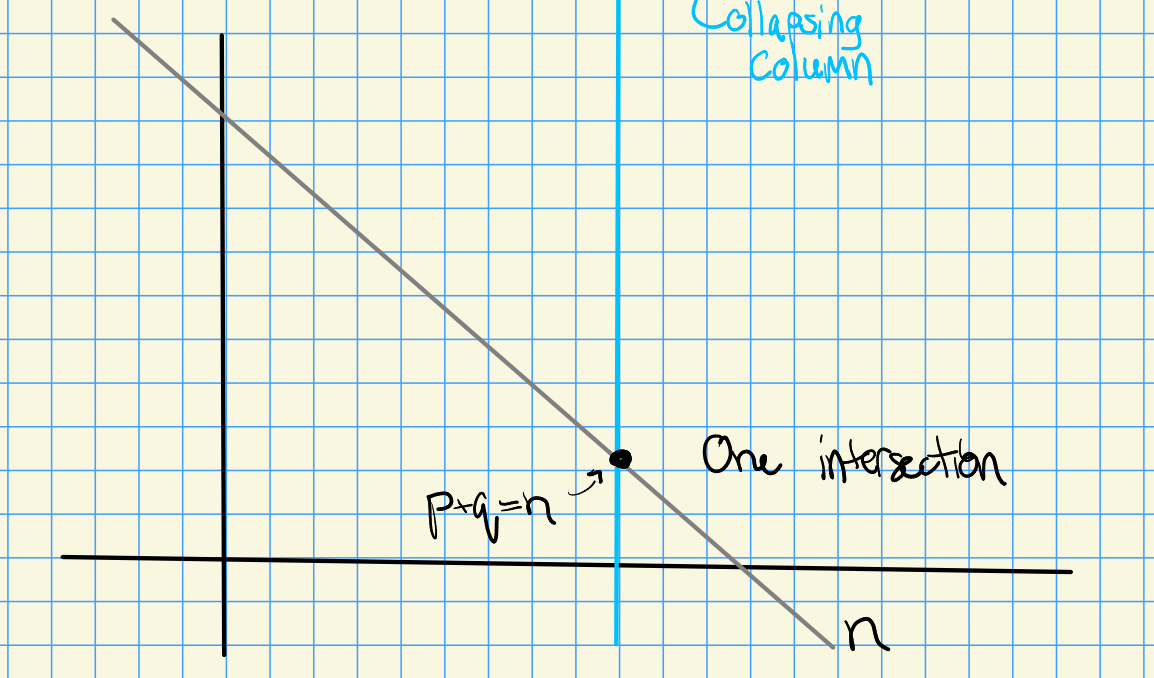 Collapsing
Column
One intersection
p+q=n
n